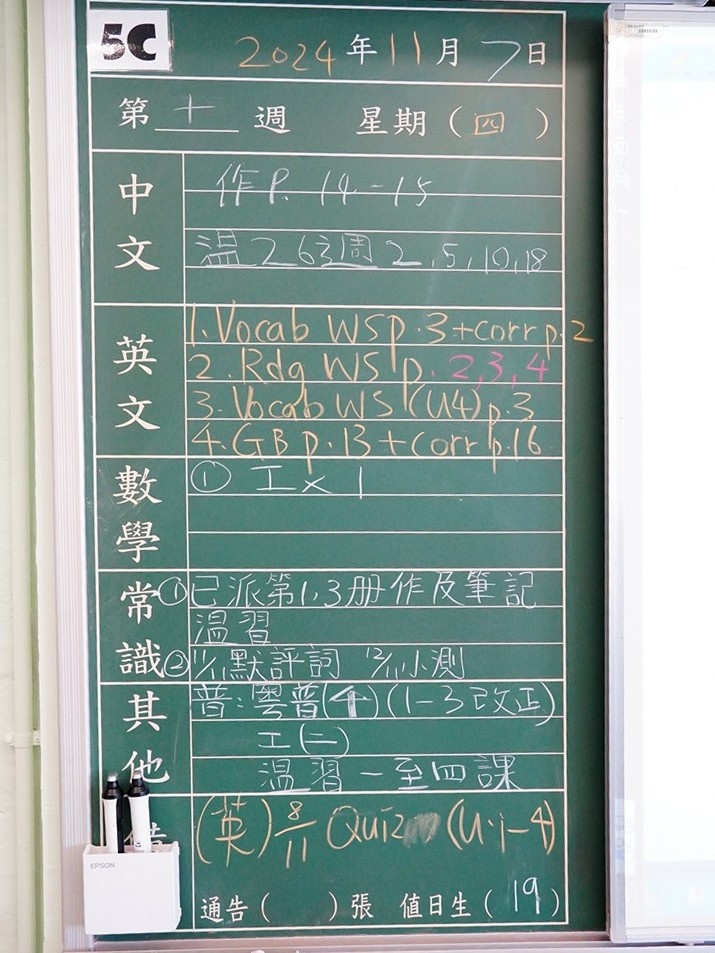 5C
2024年11月7日
第十週 星期(四)
中文
作P. 14-15
温2 6 週2,5,10,18
英文
1. Vocab WS p.3+corr p.2
2. Rdg WS p.2,3,4
3. Vocab WS (U4) p.3
4. GB p.13+corr p.16
數學
① 工x1
常識
① 已派第1,3册作及筆記
温習
② 11/11默評詞 12/11小測
其他
普:粵普(十)(1-3改正)
工(二)
温習一至四課
(英) 8/11 Quiz (U.1-4)
EPSON
通告( )張 值日生(19)